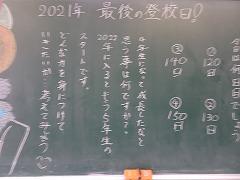 2021年 最後の登校日!
今日は何日目でしょう?
①120日
②130日
③140日
④150日
4年生になって成長したなと
思う事は何ですか?
2022年に入るともう5年生の
スタートです。
どんな力を身につけて
いきたいか考えて